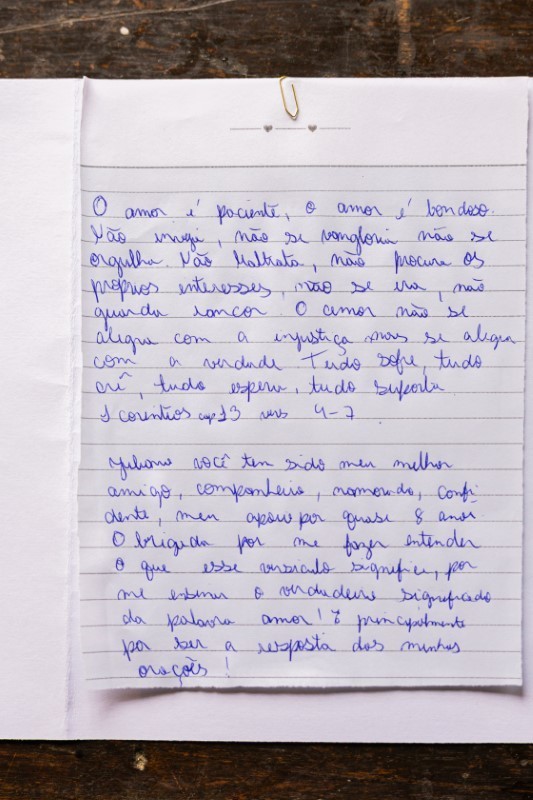 O amor é paciente, o amor é bondoso.
Não inveja, não se vangloria não se
orgulha. Não Maltrata, não procura os
próprios interesses, não se ira, não
guarda rancor. O amor não se
alegra com a injustiça mas se alegra
com a verdade. Tudo sofre, tudo
crê, tudo espera, tudo suporta.
1 corentios cap 13 vers 4-7
você tem sido meu melhor
amigo, companheiro, namorado, confi-
dente, meu apoio por quase 8 anos.
Obrigada por me fazer entender
o que esse versiculo significa, por
me ensinar o verdadeiro significado
da palavra amor! E principalmente
por ser a resposta das minhas
orações!